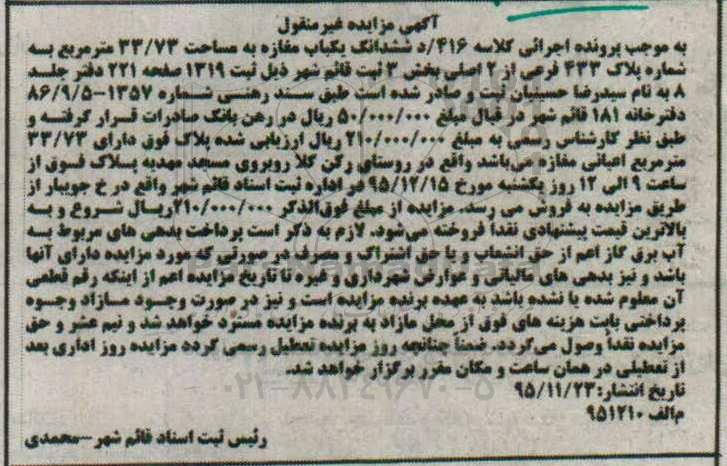 آگهی مزایده غیرمنقول
به موجب پرونده اجرائی کلاسه ۴۱۶/د ششدانگ یکباب مغازه به مساحت ۳۳/۷۳ مترمربع بسه
شماره پلاک ۴۳۳ فرعی از ۲ اصلی بخش ۳ ثبت قائم شهر ذیل ثبت ۱۳۱۹ صفحه ۲۲۱ دفتر جلسد
۸ به نام سیدرضا حسینیان ثبت و صادر شده است طبق سند رهنی شماره ۱۳۵۷-۸۶/۹/۵
دفترخانه ۱۸۱ قائم شهر در قبال مبلغ ۵۰/۰۰۰/۰۰۰ ریال در رهن بانک صادرات قرار گرفته و
طبق نظر کارشناس رسمی به مبلغ ۲۱۰/۰۰۰/۰۰۰ ریال ارزیابی شده پلاک فوق دارای ۳۳/۷۳
مترمربع اعیانی مغازه می‌باشد واقع در روستای رکن کلا روبروی مسجد مهدیه پلاک فوق از
ساعت ۹ الی ۱۲ روز یکشنبه مورخ ۹۵/۱۲/۱۵ در اداره ثبت اسناد قائم شهر واقع در خ جویبار از
طریق مزایده به فروش می رسد. مزایده از مبلغ فوق‌الذکر ۲۱۰/۰۰۰/۰۰۰ریال شروع و به
بالاترین قیمت پیشنهادی نقداً فروخته می‌شود. لازم به ذکر است پرداخت بدهی های مربوط به
آب برق گاز اعم از حق انشعاب و یا حق اشتراک و مصرف در صورتی که مورد مزایده دارای آنها
باشد و نیز بدهی های مالیاتی و عوارض شهرداری و غیره تا تاریخ مزایده اعم از اینکه رقم قطعی
آن معلوم شده یا نشده باشد به عهده برنده مزایده است و نیز در صورت وجود مازاد وجوه
پرداختی بابت هزینه های فوق از محل مازاد به برنده مزایده مسترد خواهد شد و نیم عشر و حق
مزایده نقداً وصول می‌گردد. ضمناً چنانچه روز مزایده تعطیل رسمی گردد مزایده روز اداری بعد
از تعطیلی در همان ساعت و مکان مقرر برگزار خواهد شد.
تاریخ انتشار: ۹۵/۱۱/۲۳
م‌الف ۹۵۱۲۱۰
رئیس ثبت اسناد قائم شهر -محمدی
۰۲۱-۸۸۳۴۹۶۷۰-۵